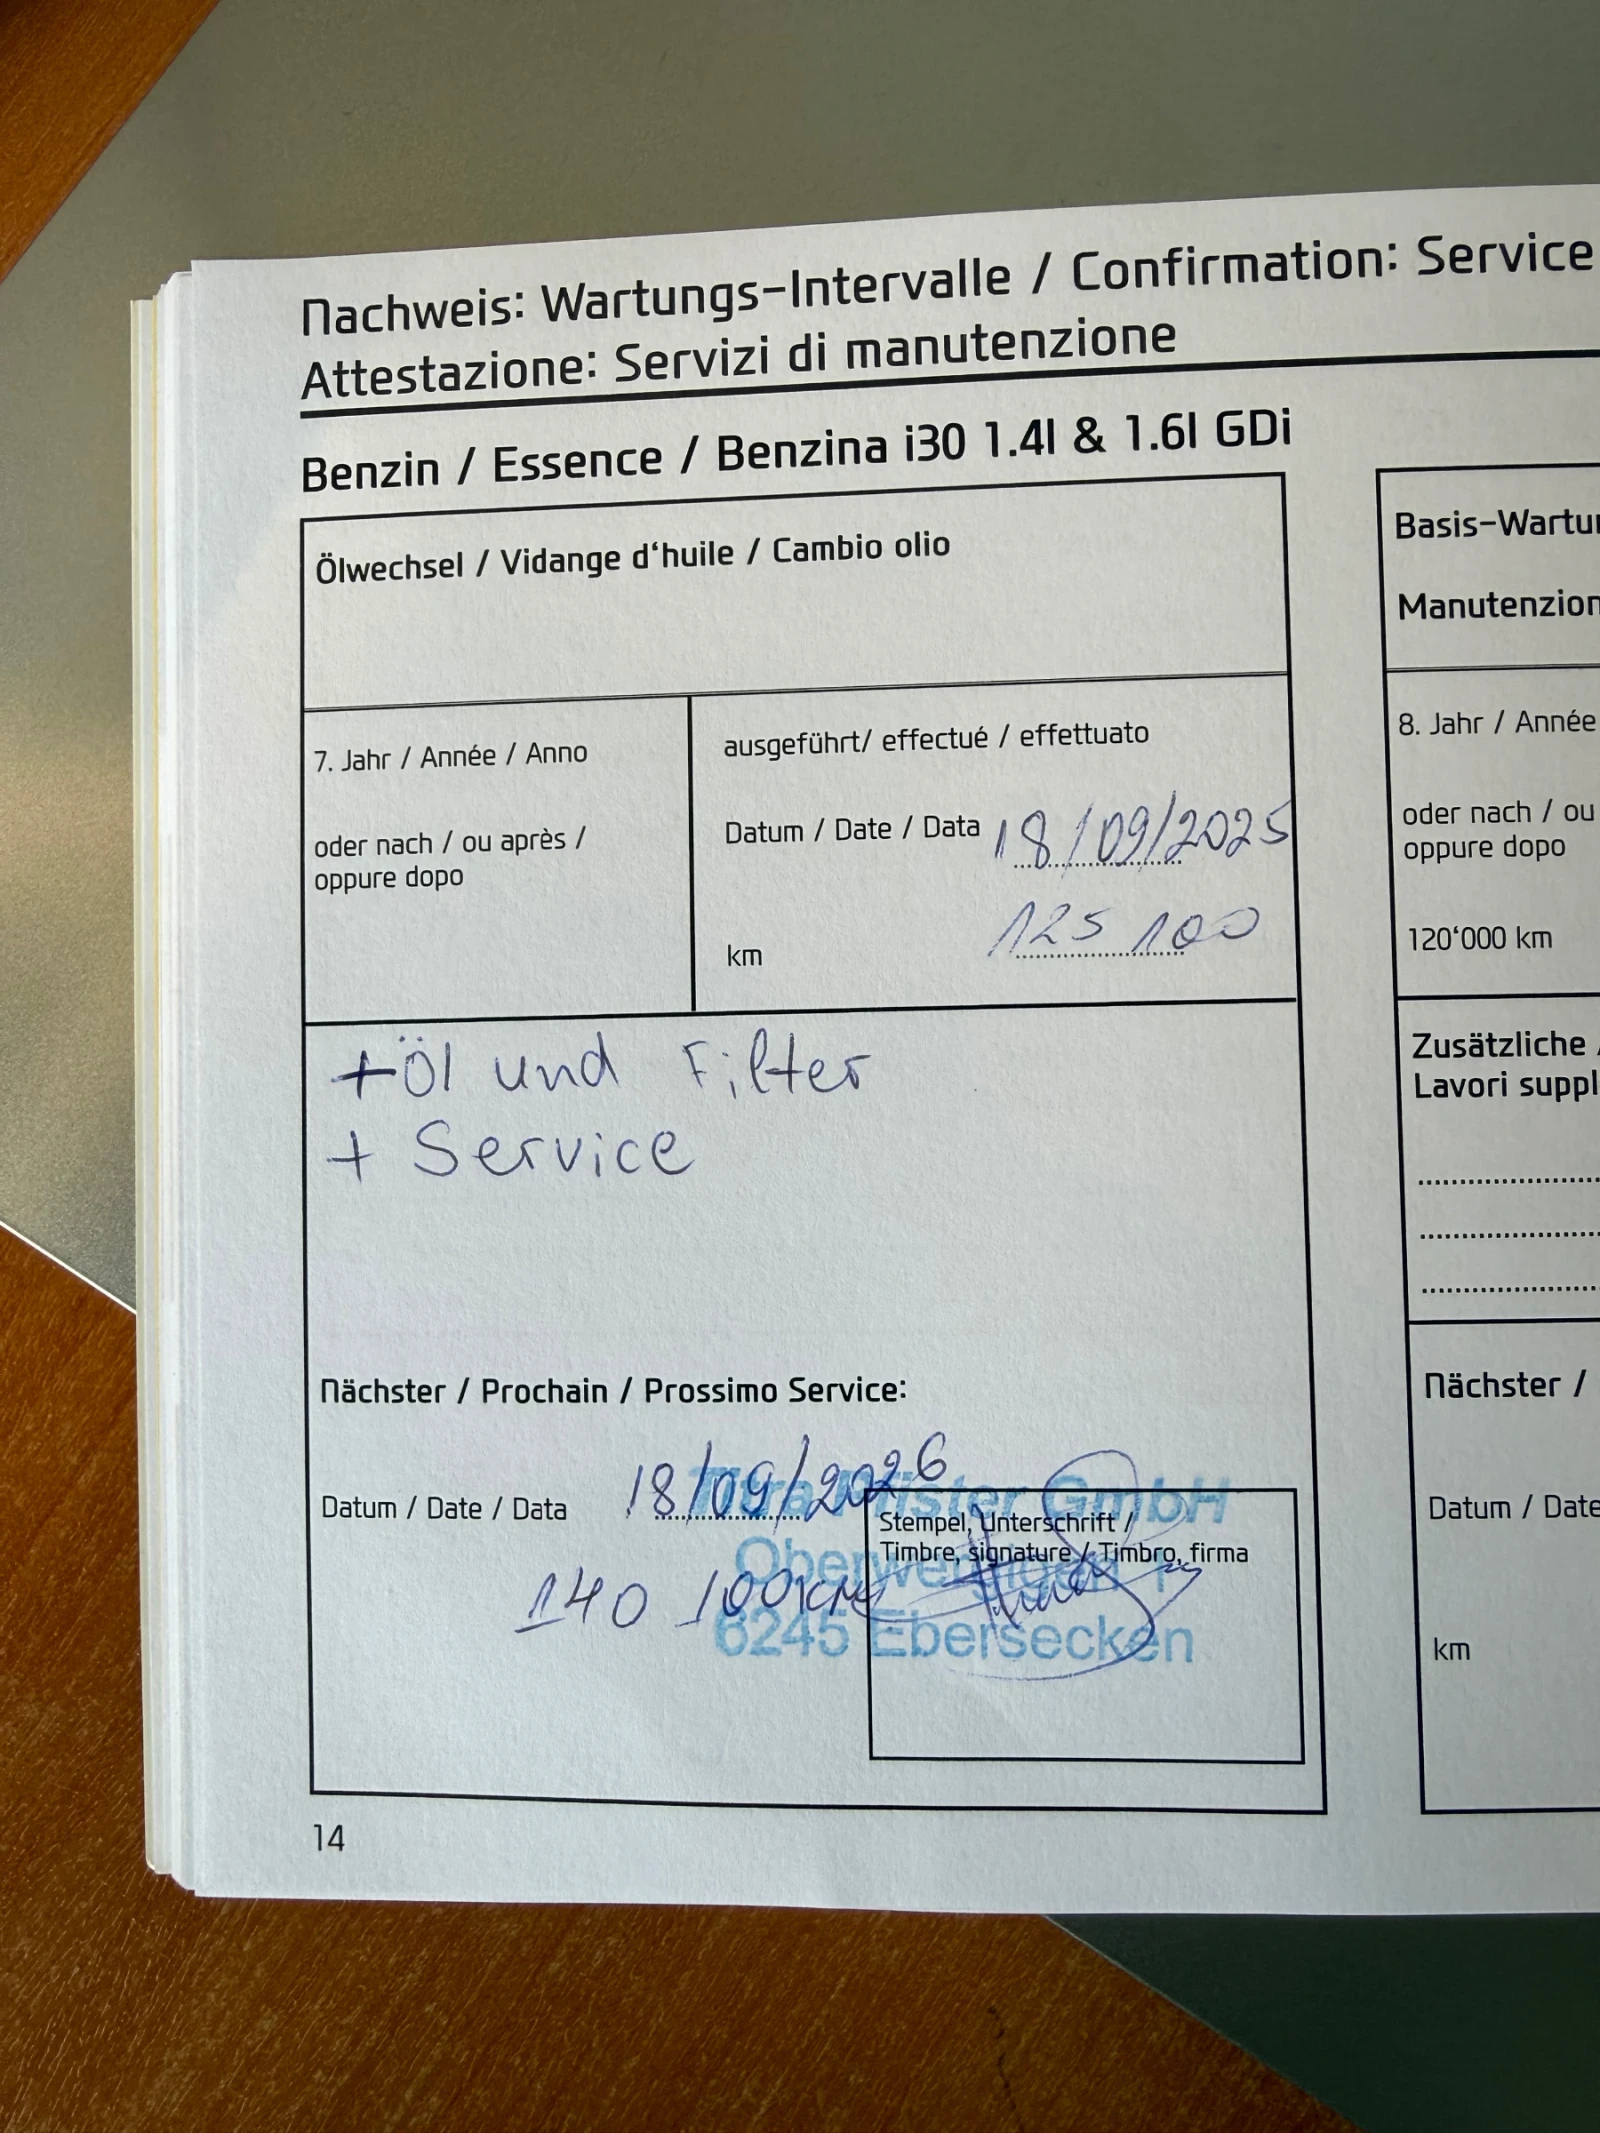 Nachweis: Wartungs-Intervalle / Confirmation: Service
Attestazione: Servizi di manutenzione
Benzin / Essence / Benzina i30 1.4l & 1.6l GDi
Ölwechsel / Vidange d'huile / Cambio olio
7. Jahr / Année / Anno
oder nach / ou après /
oppure dopo
ausgeführt/ effectué / effettuato
Datum / Date / Data 18/09/2025
km 125 100
+ Öl und Filter
+ Service
Nächster / Prochain / Prossimo Service:
Datum / Date / Data 18/09/2026
140 100km
Pfister GmbH
6245 Ebersecken
Stempel, Unterschrift /
Timbre, signature / Timbro, firma
14
Basis-Wartu
Manutenzion
8. Jahr / Année
oder nach / ou
oppure dopo
120'000 km
Zusätzliche /
Lavori suppl
Nächster /
Datum / Date
km